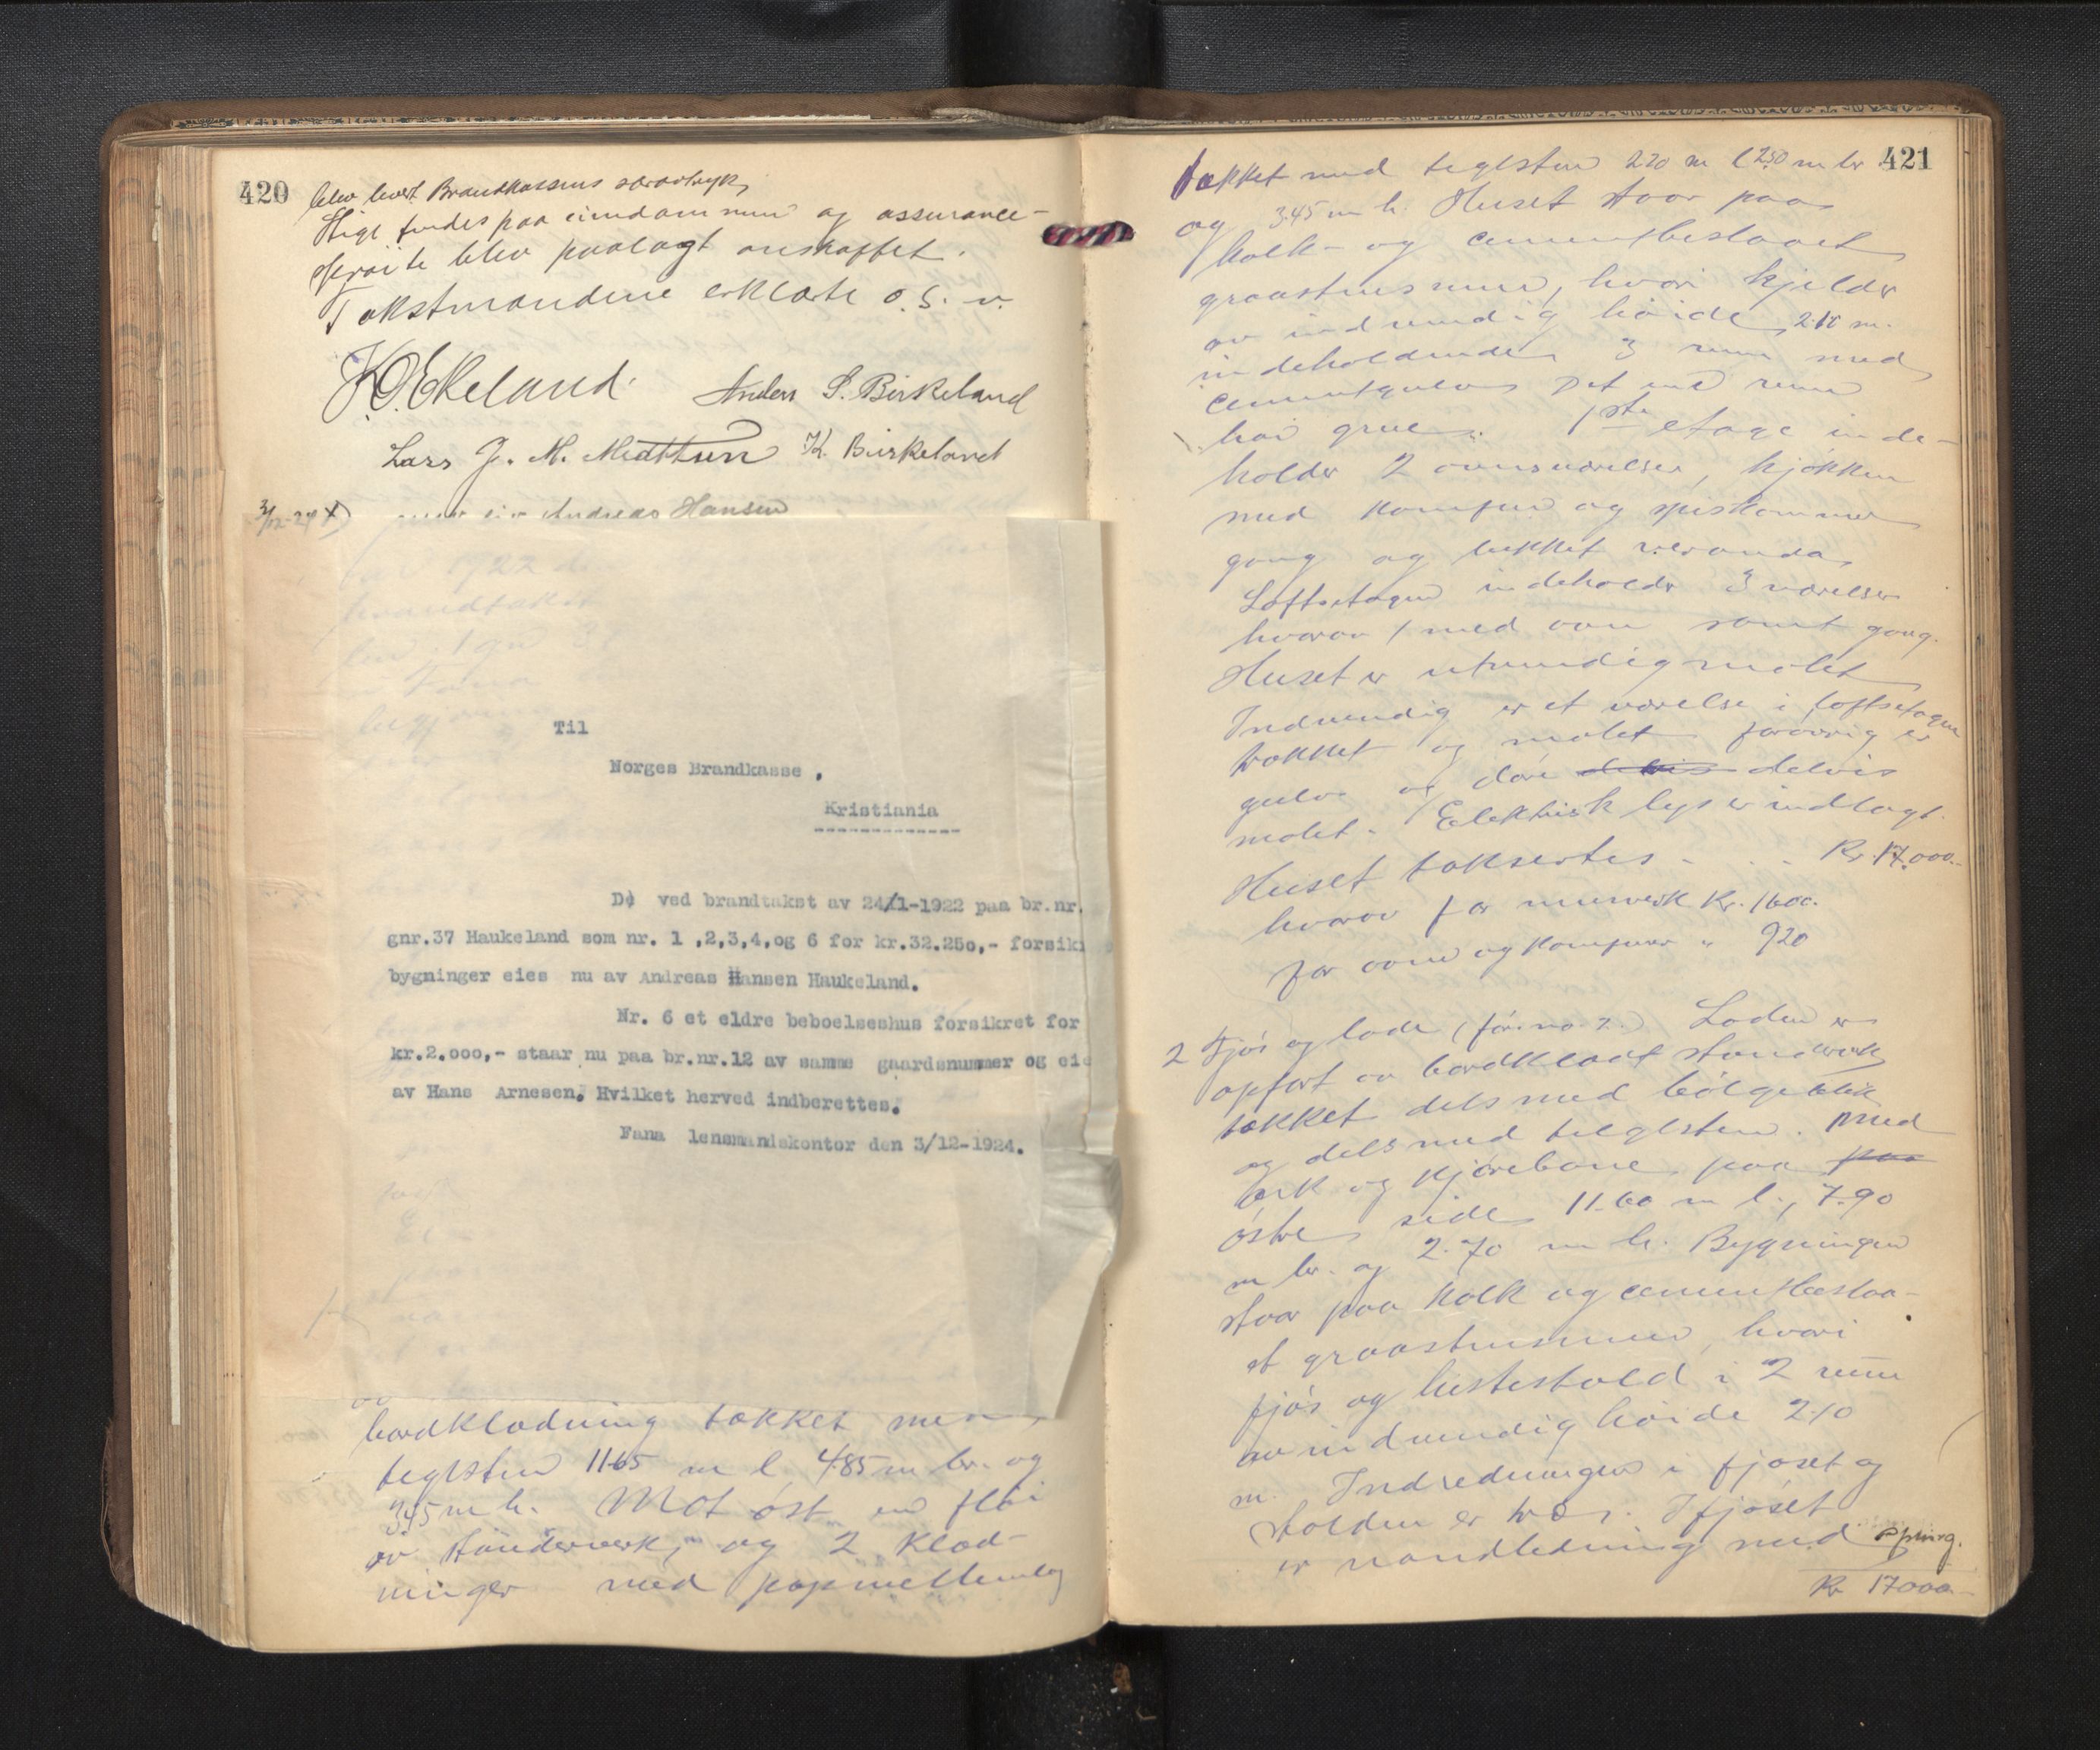 420
blev levert Brandkassens særavtryk,
Stige findes paa eiendommen og assurance-
sprøite blev paalagt anskaffet.
Takstmændene erklærte o.s.v.
K O. Ekeland. Anders S. Birkeland
Lars J. M. Midttun K. Birkeland
3/12-24 X) eier Andreas Hansen
1922
brandtakst
Til
Norges Brandkasse.
Kristiania
De ved brandtakst av 24/1-1922 paa br.nr.
gnr.37 Haukeland som nr. 1 ,2,3,4,og 6 for kr.32.250,- forsik
bygninger eies nu av Andreas Hansen Haukeland.
Nr. 6 et eldre beboelseshus forsikret for
kr.2.000,- staar nu paa br.nr.12 av samme gaardsnummer og eie
av Hans Arnesen. Hvilket herved indberettes.
Fana lensmandskontor den 3/12-1924.
bordklædning tækket med
teglsten 11.65 m l. 4.85 m br. og
3.45 m h. Mot øst en fløi
av stænderverk, og 2 klæd-
ninger med papmellemlag
421
tækket med teglsten 2.20 m l 2.50 m br
og 3.45 m h. Huset staar paa
kalk- og cementbeslaaet
graastensmur, hvori kjelder
av indvendig høide 2.10 m.
indeholdende 3 rum med
cementgulv. Det ene rum
har grue. 1ste etage inde-
holder 2 ovnsværelser, kjøkken
med komfur og spiskammer
gang og lukket veranda,
Loftsetagen indeholder 3 værelser
hvorav 1 med ovn samt gang.
Huset er utvendig malet
Indvendig er et værelse i loftsetagen
trækket og malet forøvrig er
gulv og døre delvis delvis
malet. Elektrisk lys er indlagt.
Huset takseres - - - Kr. 17.000.-
hvorav for murverk Kr. 1600.
for ovne og komfurer " 920
2 Fjøs og lade (før no. 2.) Laden er
opført av bordklædt stenderverk
tækket dels med bølgeblik
og dels med teglsten. Med
ark og kjørebane paa paa
østre side 11.60 m l., 7.90
m br. og 2.70 m h. Bygningen
staar paa kalk og cementbeslaa-
et graastensmur, hvori
fjøs og hestestald i 2 rum
av indvendig høide 2.10
m. Indredningen i fjøset og
stalden er træ. I fjøset
er vandledning med spring.
Kr 17000.-